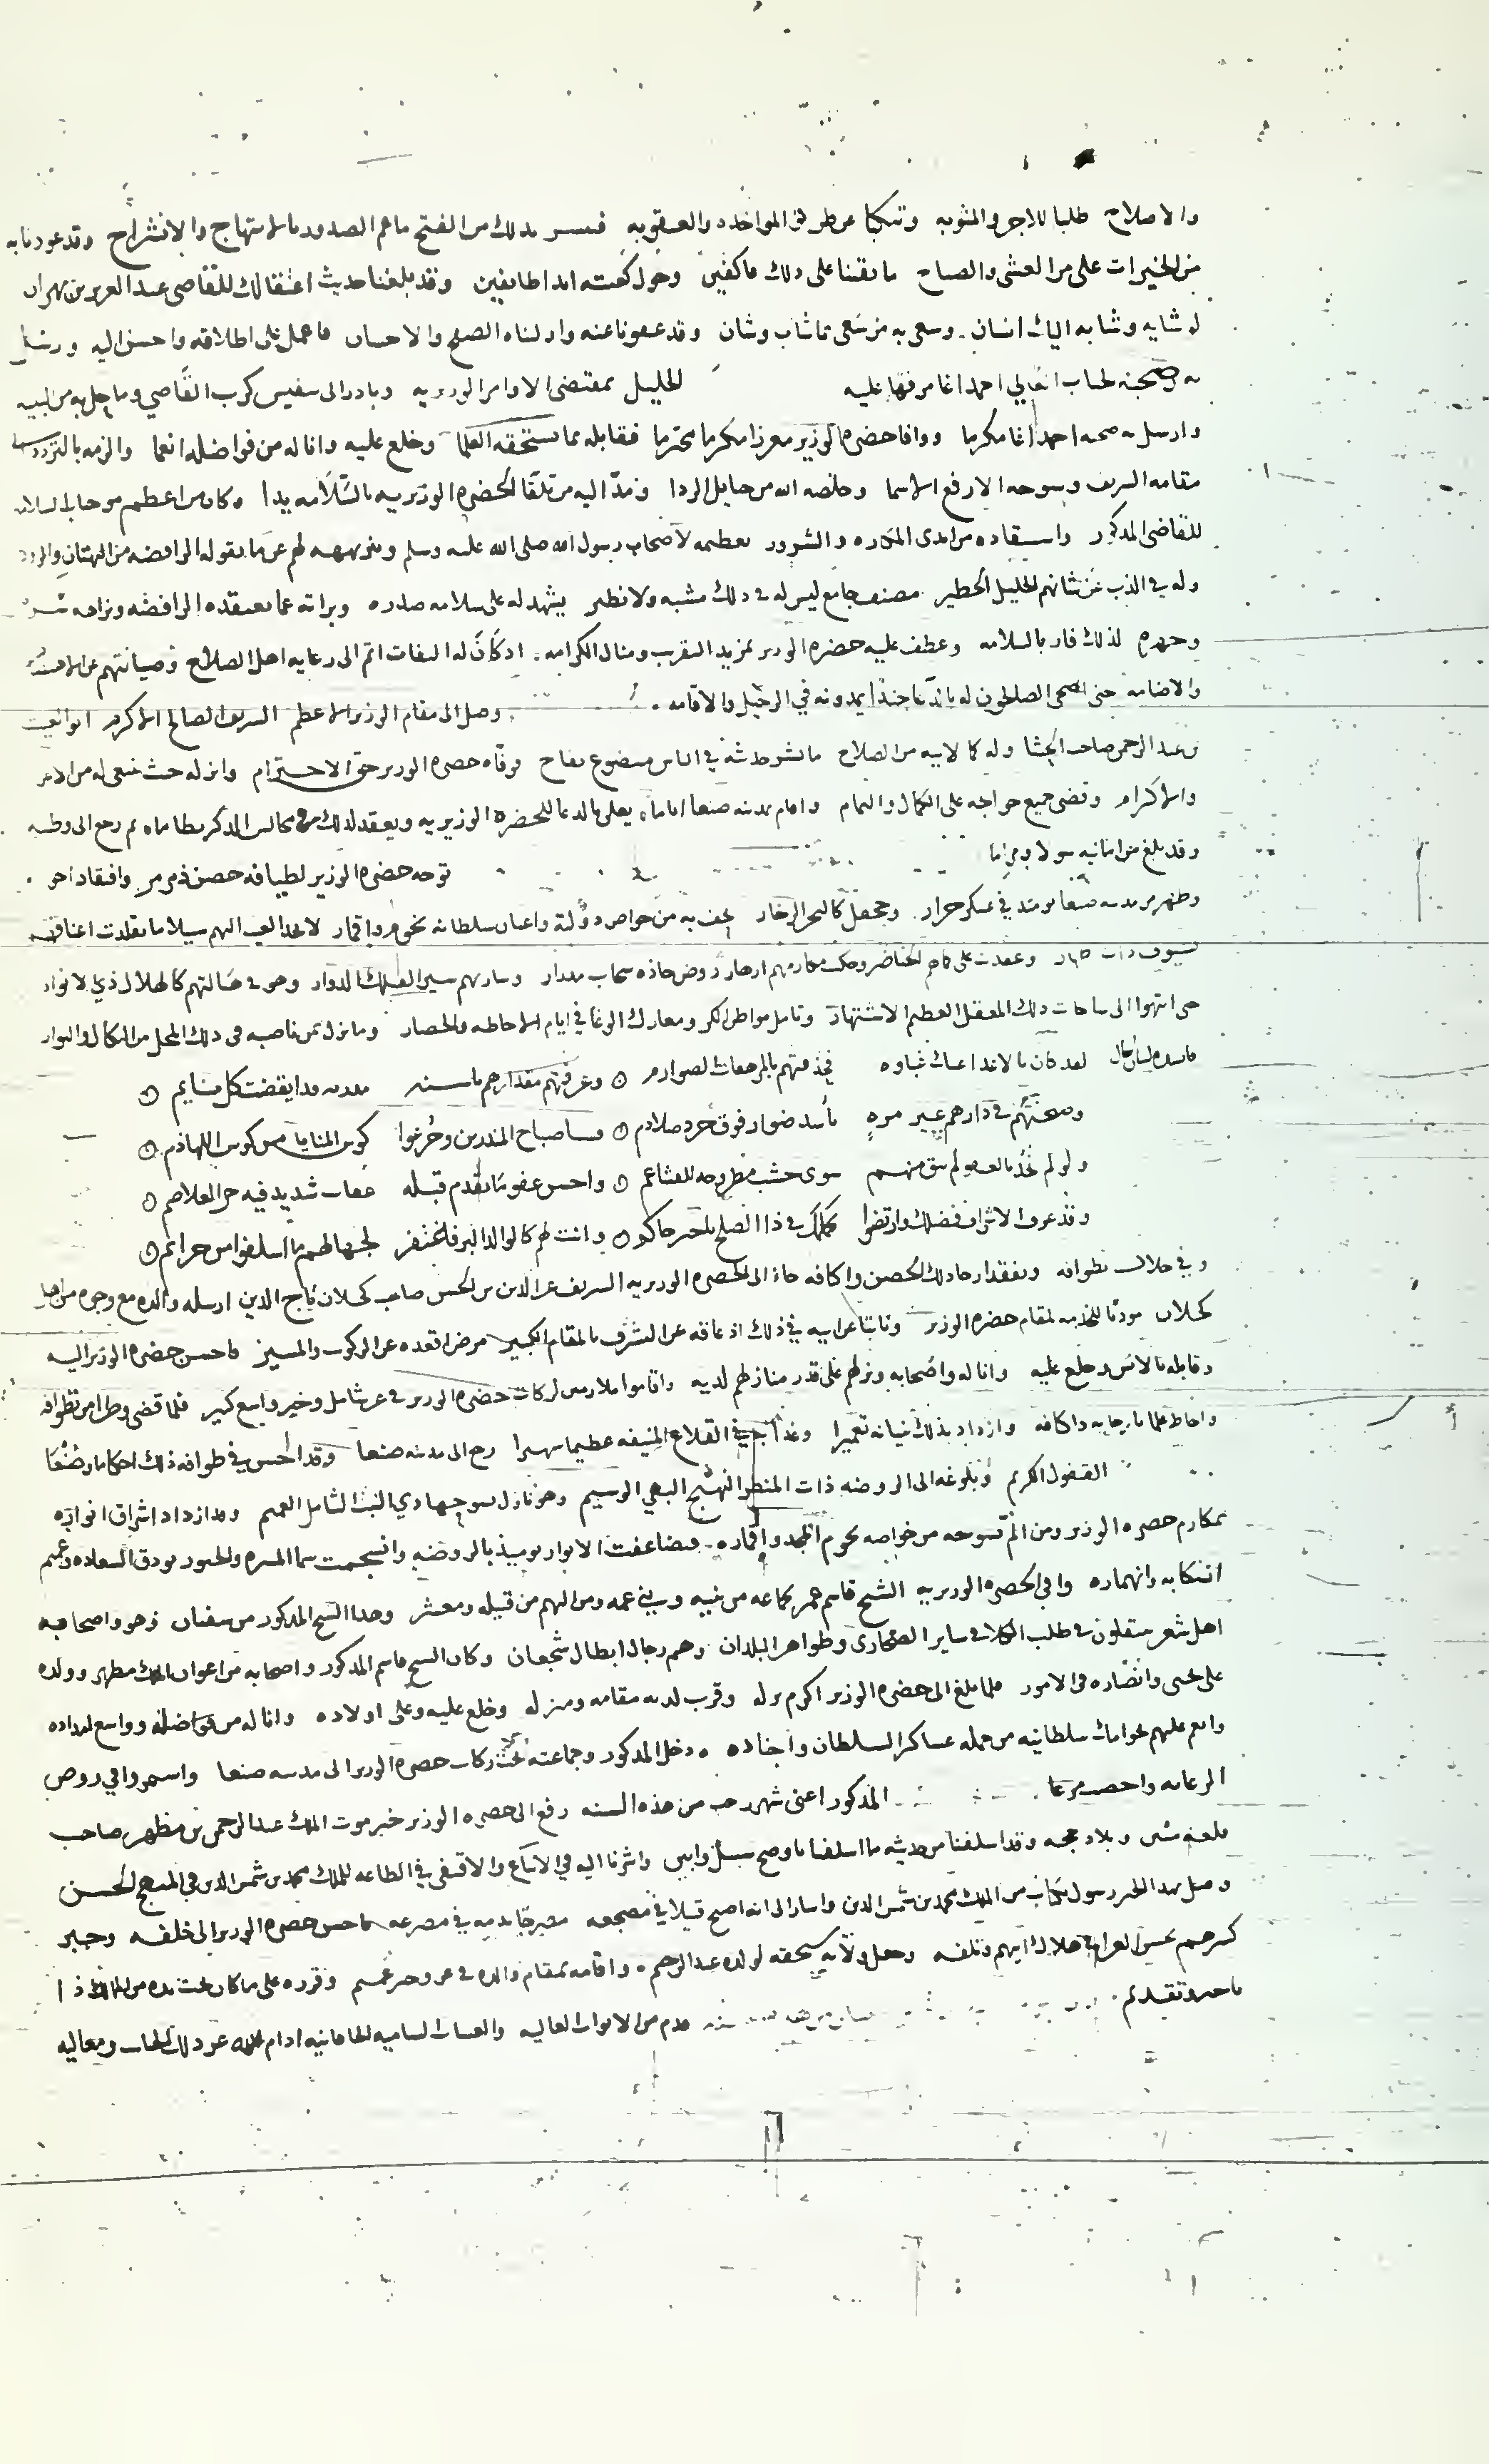 والاصلاح طلبا للاجر والمثوبه وتنكبا عن طرق المواخذه والعقوبه فيسر بذلك من الفتح ما عم الصدور بالابتهاج والانشراح وقد عودنا به
من الخيرات على مر العشي والصباح ما بقينا على ذلك عاكفين وحول كعبته ابدا طايفين وقد بلغنا حديث اعتقالك للقاضي عبد العزيز بن بهران
لوشايه وشا به اليك انسان وسعى به من سعى بما شاب وشان وقد عفونا عنه وانلناه الصفح والاحسان فاعمل على اطلاقه واحسن اليه وارسل
به صحبة لجناب العالي احمد اغا مرفها عليه الجليل بمقتضى الاوامر الوزيريه وبادر الى تنفيس كرب القاضي وما حل به من البليه
وارسل به صحبه احمد اغا مكرما ووافا حضره الوزير معززا مكرما محترما فقابله بما يستحقه العلما وخلع عليه واناله من فواضله انعما والزمه بالتردد الى
مقامه الشريف وسوحه الارفع الاسما وخلصه الله من حبايل الردا ومد اليه من تلقا الحضره الوزيريه بالسلامه يدا وكان من اعظم موجبات السلامه
للقاضي المذكور واستنقاذه من ايدي المكاره والشرور تعظيمه لاصحاب رسول الله صلى الله عليه وسلم وتنزيهه لهم عن ما يقوله الرافضه من البهتان والزور
وله في الذب عن شانهم الجليل الخطير مصنف جامع ليس له في ذلك مشبه ولا نظير يشهد له على سلامه صدره وبراته عما تعتقده الرافضه ونزاهه سره
وجهره لذلك فاز بالسلامه وعطف عليه حضره الوزير بمزيد التقرب ومنال الكرامه اذ كان له التفات اتم الى رعايه اهل الصلاح وصيانتهم عن الاهنة
والاضامه حتى اضحى الصالحون له بالدعا جندا يمدونه في الرحيل والاقامه وصل الى مقام الوزير الاعظم الشريف الصالح الاكرم ابو الغيث
بن عبد الرحمن صاحب الخشا وله كما لابيه من الصلاح ما نشر حديثه في الناس متضوع نفاح فوفاه حضره الوزير حق الاحترام وانزله حيث ينبغي له من الاعزاز
والاكرام وقضى جميع حوائجه على الكمال والتمام واقام بمدينه صنعا اياما يعلي بالدعا للحضره الوزيريه ويعقد لذلك من مجالس الذكر نظاما ثم رجع الى وطنه
وقد بلغ من امانيه سولا ومراما توجه حضره الوزير لطيافه حصن ذمرمر وافتقاد احو
وظهر من مدينه صنعا يومئذ في عسكر جرار وجحفل كالبحر الزخار يحف به من خواص دولته واعيان سلطانه نجوم واقمار لا يجد العيب اليهم سبيلا ما تقلدت اعناقهم
بسيوف ذات وعقدت على الخناصر وحكت مكارمهم ازهار روض جاده سحاب مدرار وسار بهم سير الفلك الدوار وهو في هالتهم كالهلال لذي الانوار
حتى انتهوا الى ساحات ذلك المعقل العظيم الاشتهار وتامل مواطن الكر ومعارك الوغا في ايام الاحاطه والحصار وما نزل بمن ناصبه في ذلك المحل من النكال والبوار
فانشده لسان الحال لقد كان بالاعدا غباوه فخذمتهم بالمرهفات الصوارم وعرفتهم مقدارهم باسنه كل نايم
وصبحتهم في دارهم غير مره باسد ضوار فوق جرد صلادم فسا صباح المنذرين وجرعوا كوس المنايا من كوس اللهاذم
ولو لم تجد بالعفو لم يبق منهم سوى جثث مطروحه للقشاعم واحسن عفو ما تقدم قبله عقاب شديد فيه حز الغلاصم
وقد عرف الاشراف فضلك وارتضوا بحكمك في ذا الصلح يا خير حاكم وانت لهم كالوالد البر فلتغتفر لجهالهم ما اسلفوا من جرائم
وفي خلال تطوافه وتفقد ارجا ذلك الحصن واكنافه جاء الى الحضره الوزيريه الشريف عز الدين بن الحسن صاحب كحلان تاج الدين ارسله والده مع وجوه من اهل
كحلان موديا للخدمه لمقام حضره الوزير ونائبا عن ابيه في ذلك اذ عاقه عن التشرف بالمقام الكبير مرض اقعده عن الركوب والمسير فاحسن حضره الوزير اليه
وقابله بالانس وخلع عليه واناله واصحابه ونزلهم على قدر منازلهم لديه واقاموا ملازمين لركاب حضره الوزير في عز شامل وخير واسع كبير فلما قضى وطرا من تطوافه
واحاط علما بارجايه واكنافه وازداد بذلك بنيانه تعميرا وغدا بين القلاع المنيفه عظيما شهيرا رجع الى مدينه صنعا وقد احسن في طوافه ذلك احكاما وصنعا
القفول الكريم وبلوغه الى الروضه ذات المنظر البهيج البهي الوسيم وهو نازل بسوحها ذي النبت الشامل العميم وقد ازداد اشراق انواره
بمكارم حضره الوزير ومن الم بسوحه من خواصه نجوم المجد واقماره فتضاعفت الانوار يوميذ بالروضه وانسجمت سما المسره والحبور بودق السعاده وعميم
انسكابه وانهماره وافى الحضره الوزيريه الشيخ قاسم جمر بجماعه من بنيه وبني عمه ومن اليهم من قبيله ومعشر وهذا الشيخ المذكور من سفيان وهو واصحابه
اهل شعر متنقلون في طلب الكلا في ساير الصحارى وظواهر البلدان وهم رجال ابطال شجعان وكان الشيخ قاسم المذكور واصحابه من اعوان الملك مطهر وولده
علي يحيى وانصاره في الامور فلما بلغ الى حضره الوزير اكرم نزله وقرب لديه مقامه ومنزله وخلع عليه وعلى اولاده واناله من فواضله وواسع امداده
وانعم عليهم بجوامك سلطانيه من جمله عساكر السلطان واجناده ودخل المذكور وجماعته تحت ركاب حضره الوزير الى مدينه صنعا واستمروا في روض
الرعايه واخصب مرعا المذكور اعني شهر رجب من هذه السنه رفع الى حضره الوزير خبر موت الملك عبد الرحمن بن مطهر صاحب
قلعة مبين وبلاد حجه وقد اسلفنا من حديثه ما اسلفنا باوضح سبيل وابين واشرنا اليه في الاتباع والاقتفى في الطاعه للملك محمد بن شمس الدين في المنهج الحسن
وصل بهذا الخبر رسول بكتاب من الملك محمد بن شمس الدين واشار الى انه اصبح قتيلا في مضجعه مضرجا بدمه في مصرعه فاحسن حضره الوزير الى خلفه وجبر
كسرهم بحسن العزا في هلاك ابيهم وتلفه وجعل ولايه لولده عبد الرحيم واقامه بمقام والده في عز وخير عميم وقرره على ما كان تحت يده من البلاد
تاخير وتقديم قدم من الابواب العاليه والعتبات الساميه الخاقانيه ادام الله عز ذلك الجناب ومعاليه